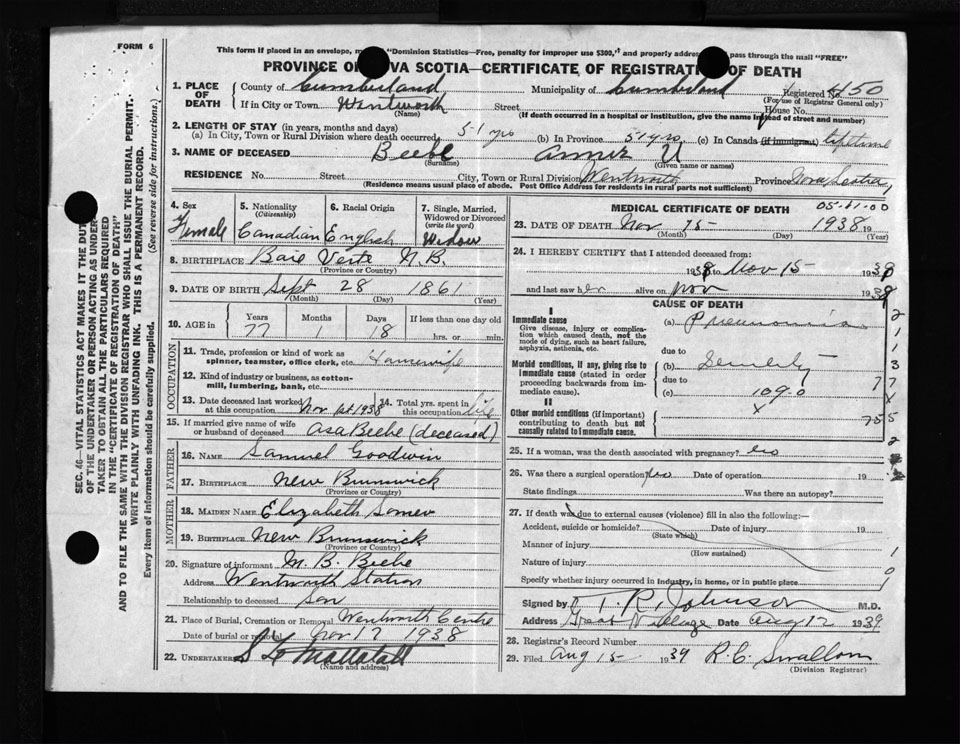 FORM 6
This form if placed in an envelope, "Dominion Statistics—Free, penalty for improper use $300," and properly address pass through the mail "FREE"
PROVINCE O VA SCOTIA—CERTIFICATE OF REGISTRATI OF DEATH
1. PLACE OF DEATH County of Cumberland Municipality of Cumberland Registered No. 450
(For use of Registrar General only)
If in City or Town Wentworth Street House No.
(Name) (If death occurred in a hospital or institution, give the name instead of street and number)
2. LENGTH OF STAY (in years, months and days)
(a) In City, Town or Rural Division where death occurred 51 yrs (b) In Province 51 yrs (c) In Canada (if immigrant) lifetime
3. NAME OF DECEASED Beebe U
(Surname) (Given name or names)
RESIDENCE No. Street City, Town or Rural Division Wentworth Province Nova Scotia
(Residence means usual place of abode. Post Office Address for residents in rural parts not sufficient)
4. Sex Female
5. Nationality (Citizenship) Canadian
6. Racial Origin English
7. Single, Married, Widowed or Divorced (write the word) Widow
8. BIRTHPLACE Baie Verte N.B.
(Province or Country)
9. DATE OF BIRTH Sept 28 1861
(Month) (Day) (Year)
10. AGE in Years 77 Months 1 Days 18 If less than one day old hrs. or min.
OCCUPATION
11. Trade, profession or kind of work as spinner, teamster, office clerk, etc. Housewife
12. Kind of industry or business, as cotton-mill, lumbering, bank, etc.
13. Date deceased last worked at this occupation Nov 1st 1938 14. Total yrs. spent in this occupation life
15. If married give name of wife or husband of deceased Asa Beebe (deceased)
FATHER
16. NAME Samuel Goodwin
17. BIRTHPLACE New Brunswick
(Province or Country)
MOTHER
18. MAIDEN NAME Elizabeth
19. BIRTHPLACE New Brunswick
(Province or Country)
20. Signature of informant M. B. Beebe
Address Wentworth Station
Relationship to deceased Son
21. Place of Burial, Cremation or Removal Wentworth Centre
Date of burial or removal Nov 17 1938
22. UNDERTAKER Mattatall
(Name and address)
MEDICAL CERTIFICATE OF DEATH 05-61-00
23. DATE OF DEATH Nov 15 1938 19
(Month) (Day) (Year)
24. I HEREBY CERTIFY that I attended deceased from:
1938 to Nov 15 1938
and last saw her alive on Nov 1938
CAUSE OF DEATH
I
Immediate cause (a) Pneumonia
Give disease, injury or complication which caused death, not the mode of dying, such as heart failure, asphyxia, asthenia, etc.
due to
Morbid conditions, if any, giving rise to Immediate cause (stated in order proceeding backwards from immediate cause). (b) Senility
due to
(c) 109.0
II
Other morbid conditions (if important) contributing to death but not causally related to immediate cause. x
25. If a woman, was the death associated with pregnancy? no
26. Was there a surgical operation? No Date of operation 19
State findings Was there an autopsy?
27. If death was due to external causes (violence) fill in also the following:—
Accident, suicide or homicide? Date of injury 19
(State which)
Manner of injury
(How sustained)
Nature of injury
Specify whether injury occurred in industry, in home, or in public place
Signed by T. R. Johnson M.D.
Address Great Village Date Aug 12 1939
28. Registrar's Record Number
29. Filed Aug 15 1939 R. C. Swallow
(Division Registrar)
SEC. 46—VITAL STATISTICS ACT MAKES IT THE DUT
OF THE UNDERTAKER OR PERSON ACTING AS UNDER-
TAKER TO OBTAIN ALL THE PARTICULARS REQUIRED
IN THE "CERTIFICATE OF REGISTRATION OF DEATH"
AND TO FILE THE SAME WITH THE DIVISION REGISTRAR WHO SHALL ISSUE THE BURIAL PERMIT.
WRITE PLAINLY WITH UNFADING INK. THIS IS A PERMANENT RECORD.
Every item of information should be carefully supplied. (See reverse side for instructions.)